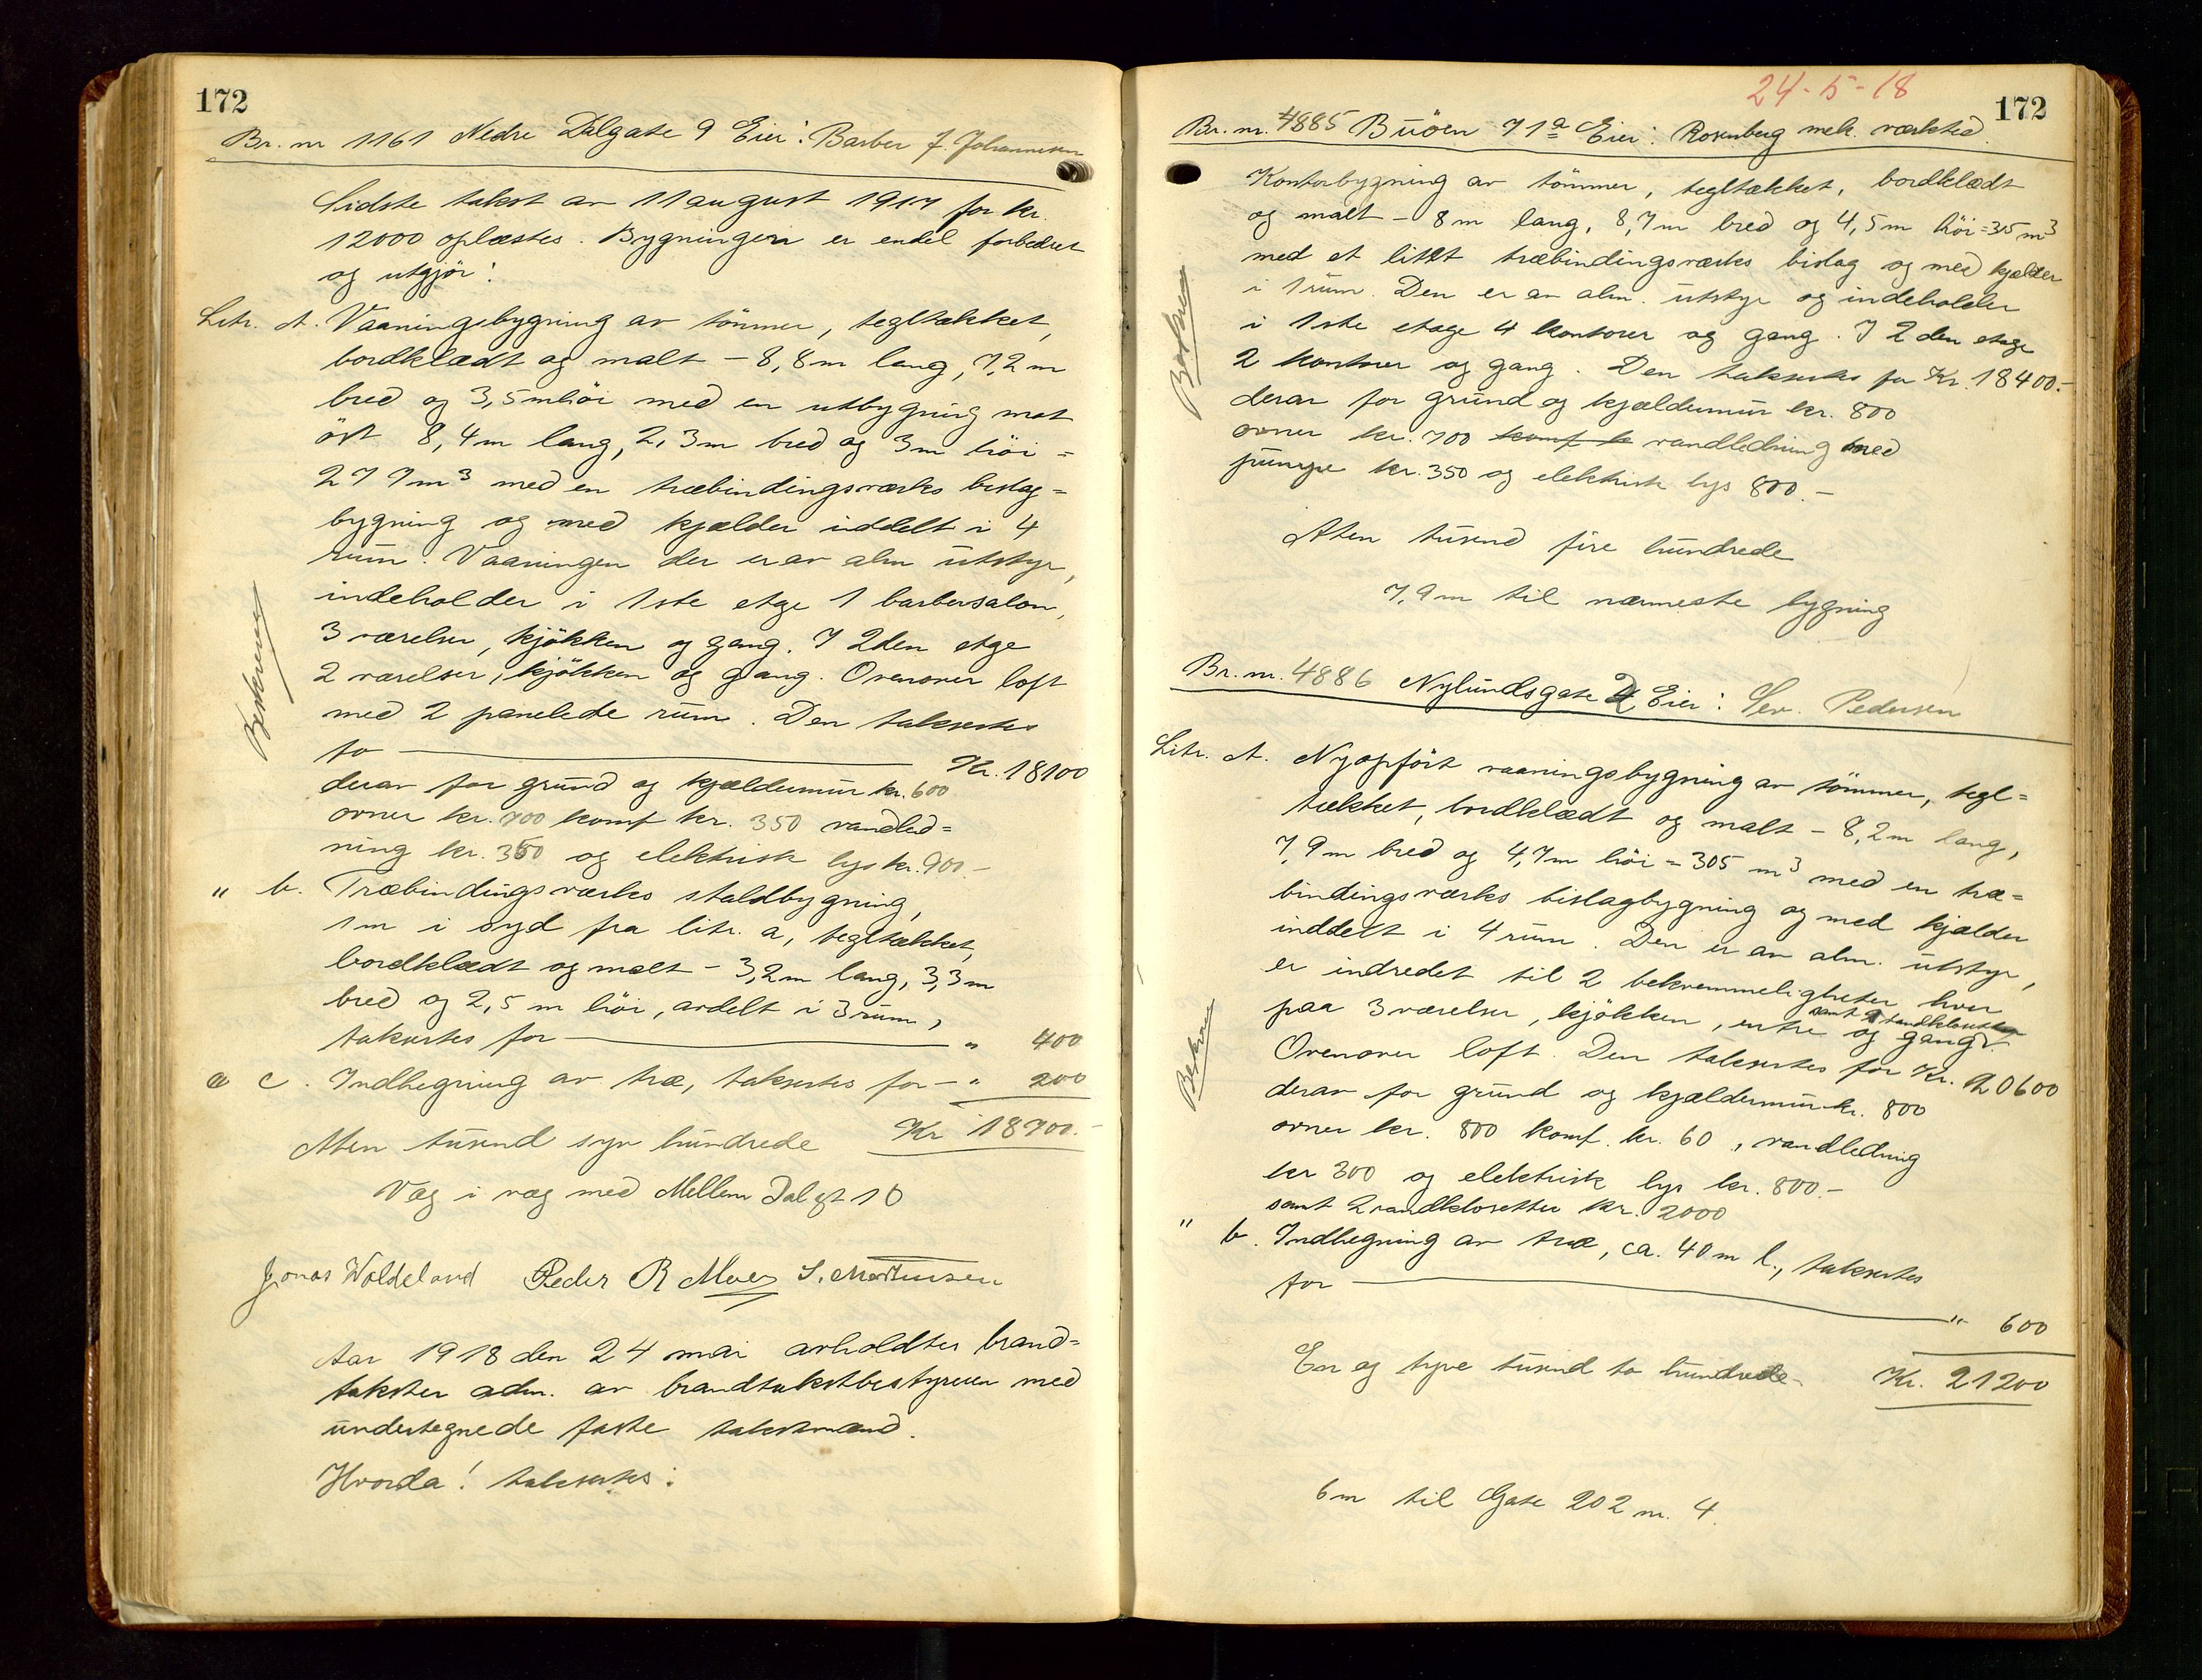 172
Br. nr 1161 Nedre Dalgate 9 Eier: Barber J. Johannesen
Sidste takst av 11 august 1917 for kr.
12000 oplæstes. Bygningen er endel forbedret
og utgjör:
Litr. A. Vaaningsbygning av tömmer, tegltækket,
bordklædt og malt – 8,8m lang, 7,2m
bred og 3,5m höi med en utbygning mot
öst 8,4m lang, 2,3m bred og 3m höi =
277m³ med en træbindingsværks bislag=
bygning og med kjælder inddelt i 4
rum. Vaaningen der er av alm utstyr,
indeholder i 1ste etge 1 barbersalon,
3 værelser, kjökken og gang. I 2den etge
2 værelser, kjökken og gang. Ovenover loft
med 2 panelede rum. Den taksertes
for Kr. 18100
derav for grund og kjældermur kr. 600
ovner kr. 700 komf kr. 350 vandled=
ning kr. 350 og elektrisk lys kr. 900.–
" b. Træbindingsværks staldbygning,
1m i syd fra litr. a, tegltækket,
bordklædt og malt – 3,2m lang, 3,3m
bred og 2,5 m höi, avdelt i 3 rum,
taksertes for " 400
" c. Indhegning av træ, taksertes for – " 200
Aten tusend syv hundrede Kr 18700.–
Væg i væg med Mellem Dalgt 10
Jonas Woldeland Peder R Moey S. Marthinsen
Aar 1918 den 24 mai avholdtes brand=
takster adm. av brandtakstbestyreren med
undertegnede faste takstmænd.
Hvorda! taksertes:
24-5-18
172
Br. nr. 4885 Buöen 71a Eier: Rosenberg mek. værksted
Kontorbygning av tömmer, tegltækket, bordklædt
og malt – 8m lang, 8,7m bred og 4,5m höi = 315 m³
med et litet træbindingsværks bislag og med kjælder
i 1 rum. Den er av alm. utstyr og indeholder
i 1ste etage 4 kontorer og gang. I 2den etage
2 kontorer og gang. Den taksertes for Kr. 18400.–
derav for grund og kjældermur kr. 800
ovner kr. 700 komf k vandledning med
pumpe kr. 350 og elektrisk lys 800.–
Aten tusend fire hundrede
7,9m til nærmeste bygning
Br. nr. 4886 Nylundsgate 2 Eier: Sev. Pedersen
Litr. A. Nyopfört vaaningsbygning av tömmer, tegl=
tækket, bordklædt og malt – 8,2m lang,
7,9m bred og 4,7m höi = 305 m³ med en træ=
bindingsværks bislagbygning og med kjælder
inddelt i 4 rum. Den er av alm. utstyr,
er indredet til 2 bekvemmeligheter hver
paa 3 værelser, kjökken, entre og gang
samt 1 vandkloset
Ovenover loft. Den taksertes for Kr. 20600
derav for grund og kjældermur kr. 800
ovner kr. 800 komf. kr. 60, vandledning
kr 300 og elektrisk lys kr. 800.–
samt 2 vandklosetter kr. 2000
" b. Indhegning av træ, ca. 40 m l., taksertes
for " 600
En og tyve tusend to hundrede Kr. 21200
6m til Gate 202 nr. 4.